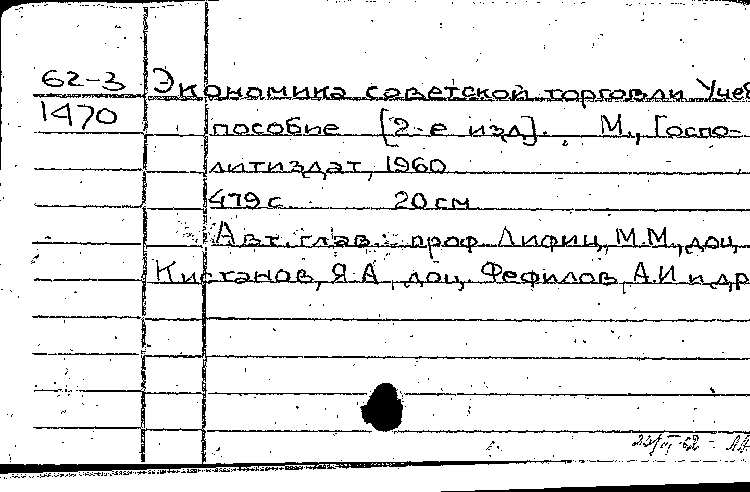 62-3 Экономика советской торговли Учеб
1470 пособие [2-е изд]. М., Госпо-
литиздат, 1960
479 с. 20 см
Авт. глав: проф Лифиц, М.М., доц
Кистанов, Я.А, доц. Фефилов, А.И и др